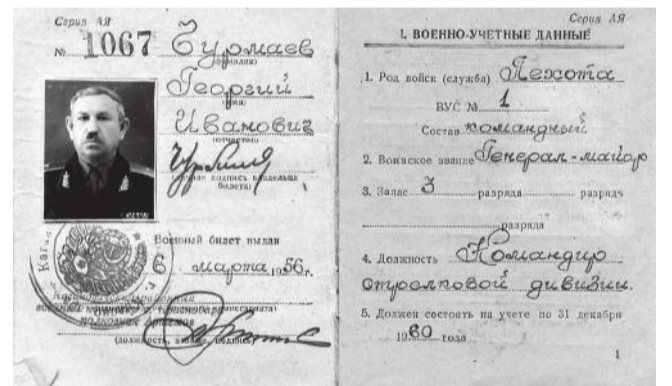 Серия АЯ
№ 1067 Бурмаев
(фамилия)
Георгий
(имя)
Иванович
(отчество)
(личная подпись владельца
билета)
Военный билет выдан
6 марта 1956 г.
(должность, звание, подпись)
Серия АЯ
I. ВОЕННО-УЧЕТНЫЕ ДАННЫЕ
1. Род войск (служба) Пехота
ВУС № 1
Состав командный
2. Воинское звание Генерал-майор
3. Запас 3 разряда разряда
разряда
4. Должность Командир
стрелковой дивизии.
5. Должен состоять на учете по 31 декабря
1960 года
1